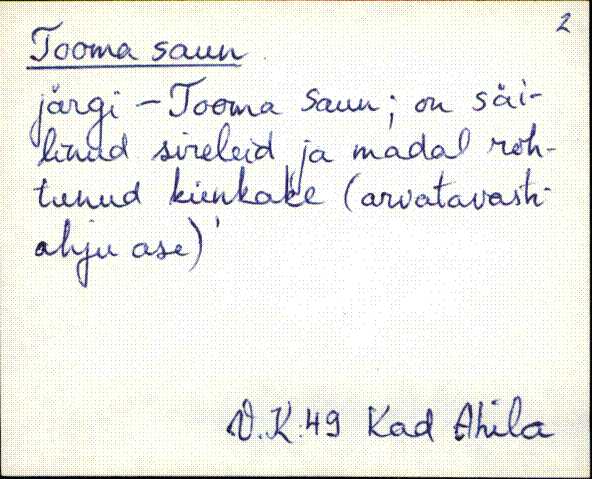 2
Tooma saun
järgi – Tooma saun; on säi-
linud sireleid ja madal roh-
tunud künkake (arvatavasti
ahju ase)'
V.K.49 Kad Ahila